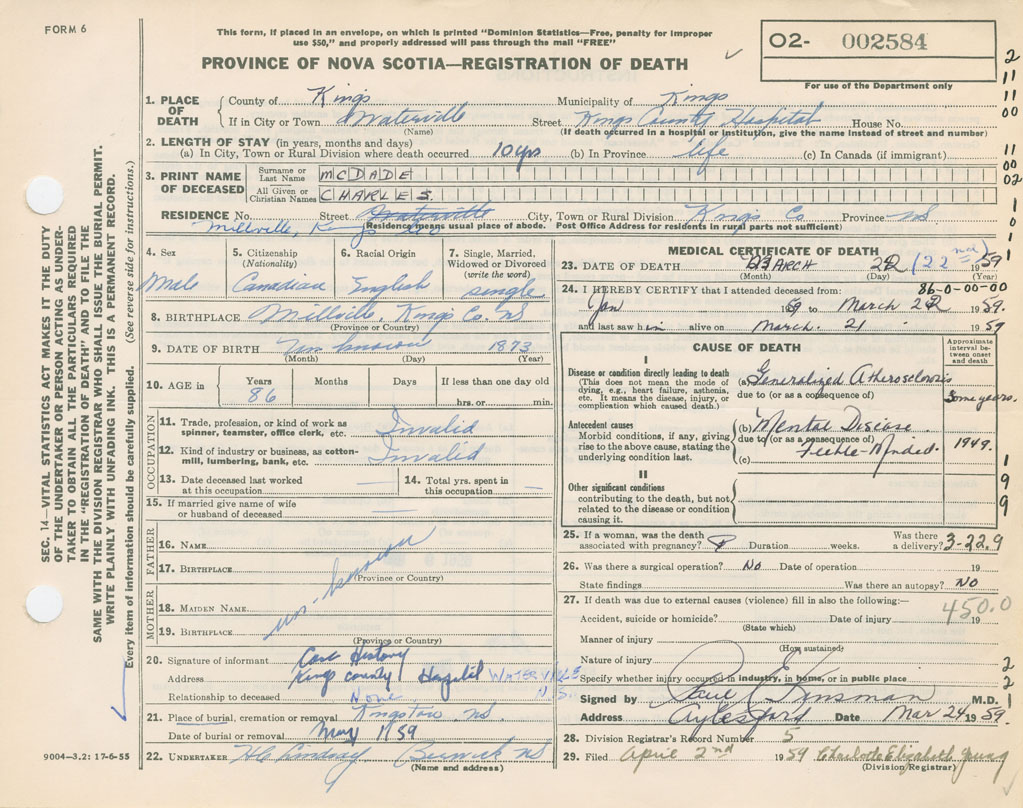 FORM 6
This form, if placed in an envelope, on which is printed "Dominion Statistics—Free, penalty for improper
use $50," and properly addressed will pass through the mail "FREE"
O2- 002584
For use of the Department only
PROVINCE OF NOVA SCOTIA—REGISTRATION OF DEATH
1. PLACE OF DEATH
County of Kings Municipality of Kings
If in City or Town Waterville Street Kings County Hospital House No.
(Name) (If death occurred in a hospital or institution, give the name instead of street and number)
2. LENGTH OF STAY (in years, months and days)
(a) In City, Town or Rural Division where death occurred 10 yrs (b) In Province life (c) In Canada (if immigrant)
3. PRINT NAME OF DECEASED
Surname or Last Name MCDADE
All Given or Christian Names CHARLES.
RESIDENCE No. Street Waterville City, Town or Rural Division Kings Co Province NS
Millville, Kings Co (Residence means usual place of abode. Post Office Address for residents in rural parts not sufficient)
4. Sex Male
5. Citizenship (Nationality) Canadian
6. Racial Origin English
7. Single, Married, Widowed or Divorced (write the word) single
8. BIRTHPLACE Millville, Kings Co. NS
(Province or Country)
9. DATE OF BIRTH Unknown 1873
(Month) (Day) (Year)
10. AGE in Years 86 Months Days If less than one day old
hrs. or min.
OCCUPATION
11. Trade, profession, or kind of work as spinner, teamster, office clerk, etc. Invalid
12. Kind of industry or business, as cotton-mill, lumbering, bank, etc. Invalid
13. Date deceased last worked at this occupation —
14. Total yrs. spent in this occupation —
15. If married give name of wife or husband of deceased —
FATHER
16. NAME
17. BIRTHPLACE
(Province or Country)
unknown
MOTHER
18. MAIDEN NAME
19. BIRTHPLACE
(Province or Country)
20. Signature of informant Case History
Address Kings County Hospital WATERVILLE
N.S.
Relationship to deceased None
21. Place of burial, cremation or removal Kingston NS
Date of burial or removal May 1/59
22. UNDERTAKER Berwick NS
(Name and address)
MEDICAL CERTIFICATE OF DEATH
23. DATE OF DEATH MARCH 22 (22nd) 1959
(Month) (Day) (Year)
24. I HEREBY CERTIFY that I attended deceased from: 86-0-00-00
Jan 59 to March 22 1959.
and last saw him alive on March. 21 1959
CAUSE OF DEATH
Approximate interval between onset and death
I
Disease or condition directly leading to death
(This does not mean the mode of dying, e.g., heart failure, asthenia, etc. It means the disease, injury, or complication which caused death.)
(a) Generalized Atherosclerosis
due to (or as a consequence of)
Some years.
Antecedent causes
Morbid conditions, if any, giving rise to the above cause, stating the underlying condition last.
(b) Mental Disease.
due to (or as a consequence of)
(c) Feeble-Minded.
1949.
II
Other significant conditions
contributing to the death, but not related to the disease or condition causing it.
25. If a woman, was the death associated with pregnancy? Duration weeks. Was there a delivery? 3-22.9
26. Was there a surgical operation? No Date of operation 19
State findings Was there an autopsy? No
27. If death was due to external causes (violence) fill in also the following:—
450.0
Accident, suicide or homicide? Date of injury 19
(State which)
Manner of injury
(How sustained)
Nature of injury
Specify whether injury occurred in industry, in home, or in public place
Signed by Paul E Kinsman M.D.
Address Aylesford Date Mar 24 1959.
28. Division Registrar's Record Number 5
29. Filed April 2nd 1959 Charlotte Elizabeth Young
(Division Registrar)
2
11
11
00
11
00
02
1
0
1
1
1
9
9
2
2
1
SEC. 14—VITAL STATISTICS ACT MAKES IT THE DUTY
OF THE UNDERTAKER OR PERSON ACTING AS UNDER-
TAKER TO OBTAIN ALL THE PARTICULARS REQUIRED
IN THE "REGISTRATION OF DEATH" AND TO FILE THE
SAME WITH THE DIVISION REGISTRAR WHO SHALL ISSUE THE BURIAL PERMIT.
WRITE PLAINLY WITH UNFADING INK. THIS IS A PERMANENT RECORD.
Every item of information should be carefully supplied. (See reverse side for instructions.)
9004—3.2: 17-6-55